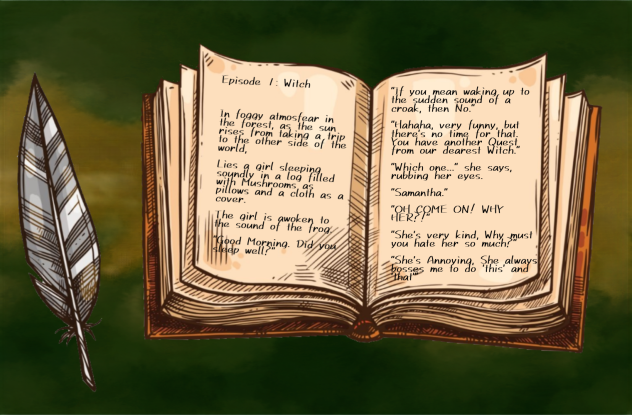 Episode 1: Witch
In foggy atmosfear in
the forest, as the sun
rises from taking a trip
to the other side of the
world,
Lies a girl sleeping
soundly in a log filled
with Mushrooms as
pillows and a cloth as a
cover.
The girl is awoken to
the sound of the frog,
"Good Morning. Did you
sleep well?"
"If you mean waking up to
the sudden sound of a
croak, then No."
"Hahaha, very funny, but
there's no time for that.
You have another Quest
from our dearest Witch."
"Which one..." she says,
rubbing her eyes.
"Samantha."
"OH COME ON! WHY
HER?!"
"She's very kind, Why must
you hate her so much?"
"She's Annoying, She always
bosses me to do 'this' and
'that'"